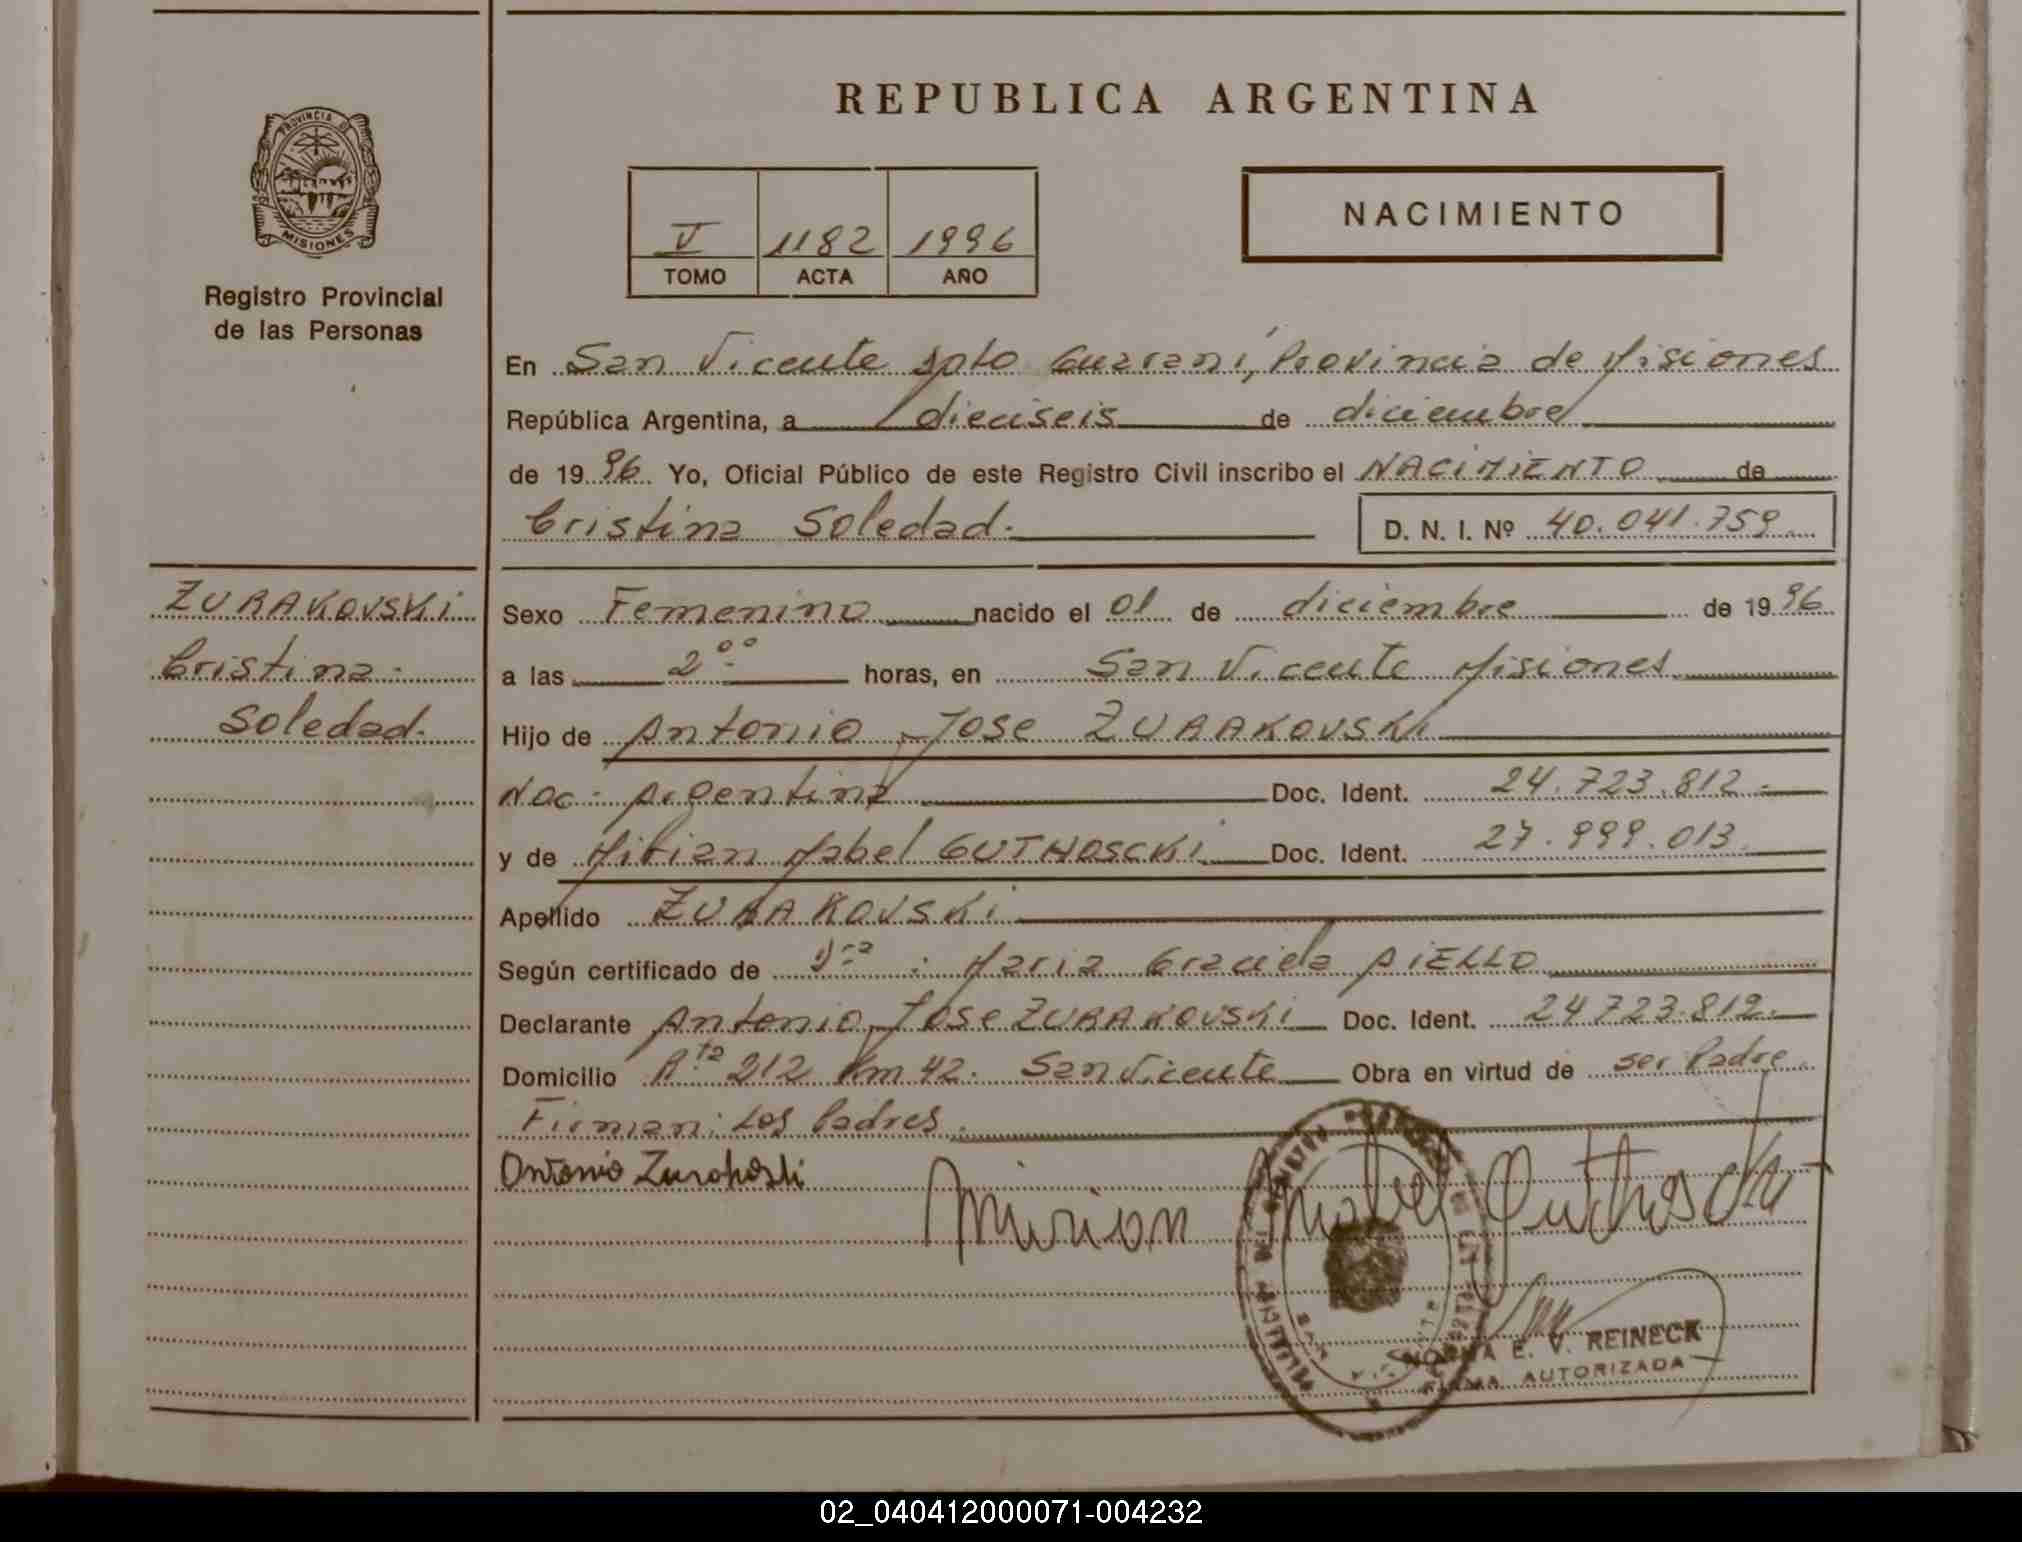 REPUBLICA ARGENTINA
PROVINCIA DE
MISIONES
Registro Provincial
de las Personas
V 1182 1996
TOMO ACTA AÑO
NACIMIENTO
En San Vicente Dpto Guaraní, Provincia de Misiones
República Argentina, a dieciseis de diciembre
de 1996 Yo, Oficial Público de este Registro Civil inscribo el NACIMIENTO de
Cristina Soledad.
D. N. I. Nº 40.041.759
ZURAKOVSKi
Cristina
Soledad.
Sexo Femenino nacido el 01 de diciembre de 1996
a las 2°° horas, en San Vicente Misiones
Hijo de Antonio Jose ZURAKOVSKi
Nac: Argentina Doc. Ident. 24.723.812.-
y de Mirian Mabel GUTHOSCKi Doc. Ident. 27.999.013
Apellido ZURAKOVSKi
Según certificado de Dra: Maria Graciela AiELLO
Declarante Antonio Jose ZURAKOVSKi Doc. Ident. 24.723.812.
Domicilio Rta 212 Km 42. San Vicente Obra en virtud de ser Padre.
Firman: Los Padres.
Antonio Zurakoski
Mirian Mabel Guthoscki
NORMA E. V. REINECK
FIRMA AUTORIZADA
02_040412000071-004232